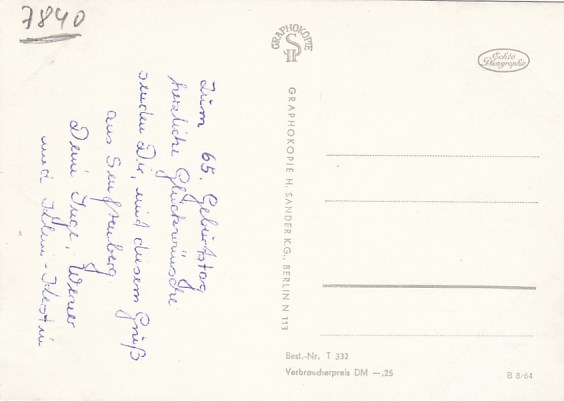 7840
Zum 65. Geburtstag
herzliche Glückwünsche
senden Dir, mit diesem Gruß
aus Senftenberg
Deine Inge, Werner
und Klein-Kerstin
GRAPHOKOPIE
H S
GRAPHOKOPIE H. SANDER K.G., BERLIN N 113
Echte
Photographie
Best.-Nr. T 332
Verbraucherpreis DM —.25
B 8/64